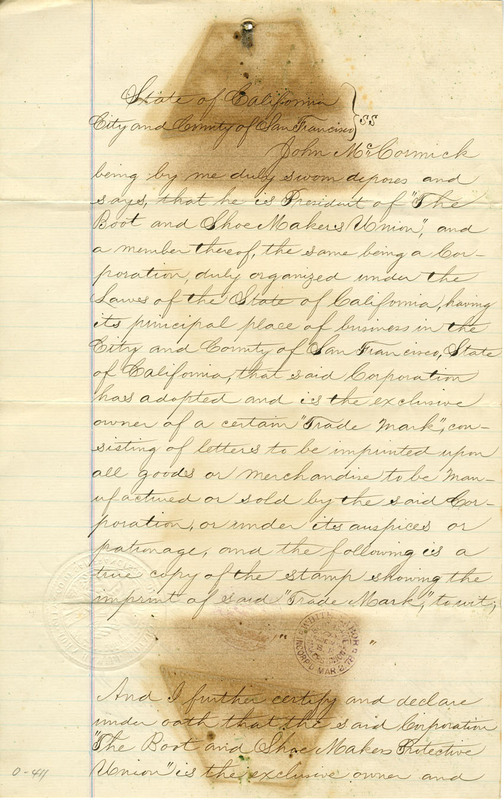 State of California
City and County of San Francisco } SS
John McCormick
being by me duly sworn deposes and
says, that he is President of "The
Boot and Shoe Makers Union", and
a member thereof, the same being a Cor-
poration, duly organized under the
Laws of the State of California, having
its principal place of business in the
City and County of San Francisco, State
of California, that said Corporation
has adopted and is the exclusive
owner of a certain "Trade Mark", con-
sisting of letters to be imprinted upon
all goods or merchandise to be Man-
ufactured or sold by the said Cor-
poration, or under its auspices or
patronage, and the following is a
true copy of the stamp showing the
imprint of said "Trade Mark," to wit;
" WHITE LABOR INCORP'D MAR "
And I further certify and declare
under oath that the said Corporation
"The Boot and Shoe Makers Protective
Union" is the exclusive owner and
0-411